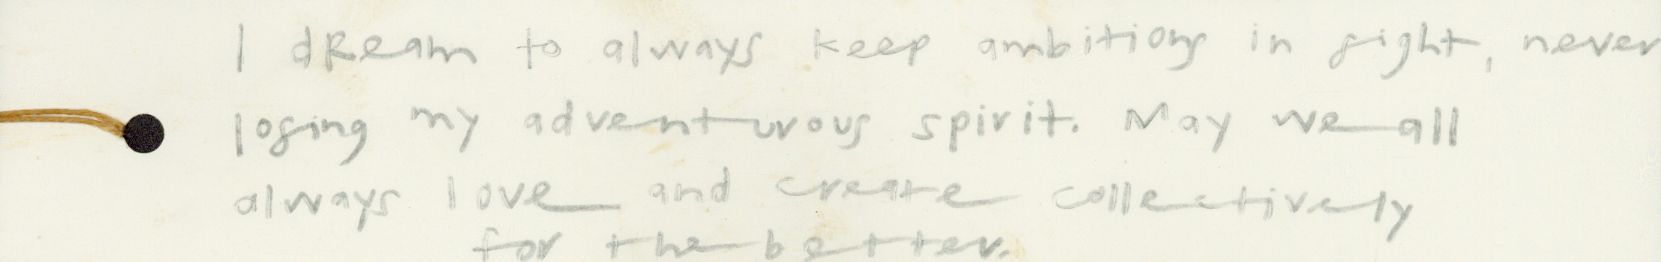 I dream to always keep ambitions in sight, never
losing my adventurous spirit. May we all
always love and create collectively
for the better.